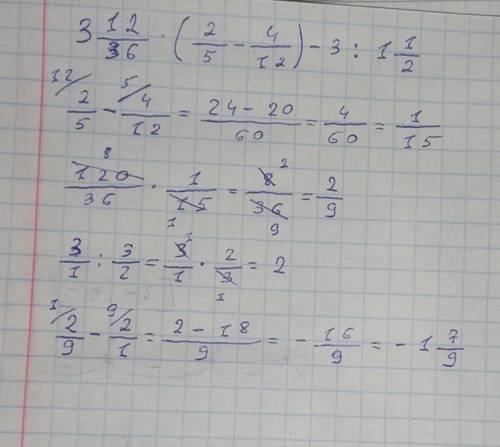 3 12/36 · (2/5 - 4/12) - 3 : 1 1/2
12/ 2/5 - 5/ 4/12 = 24 - 20/60 = 4/60 = 1/15
8 120/36 · 1/15 1 = 8 2/36 9 = 2/9
3/1 : 3/2 = 3 1/1 · 2/3 1 = 2
1/ 2/9 - 9/ 2/1 = 2 - 18/9 = - 16/9 = - 1 7/9